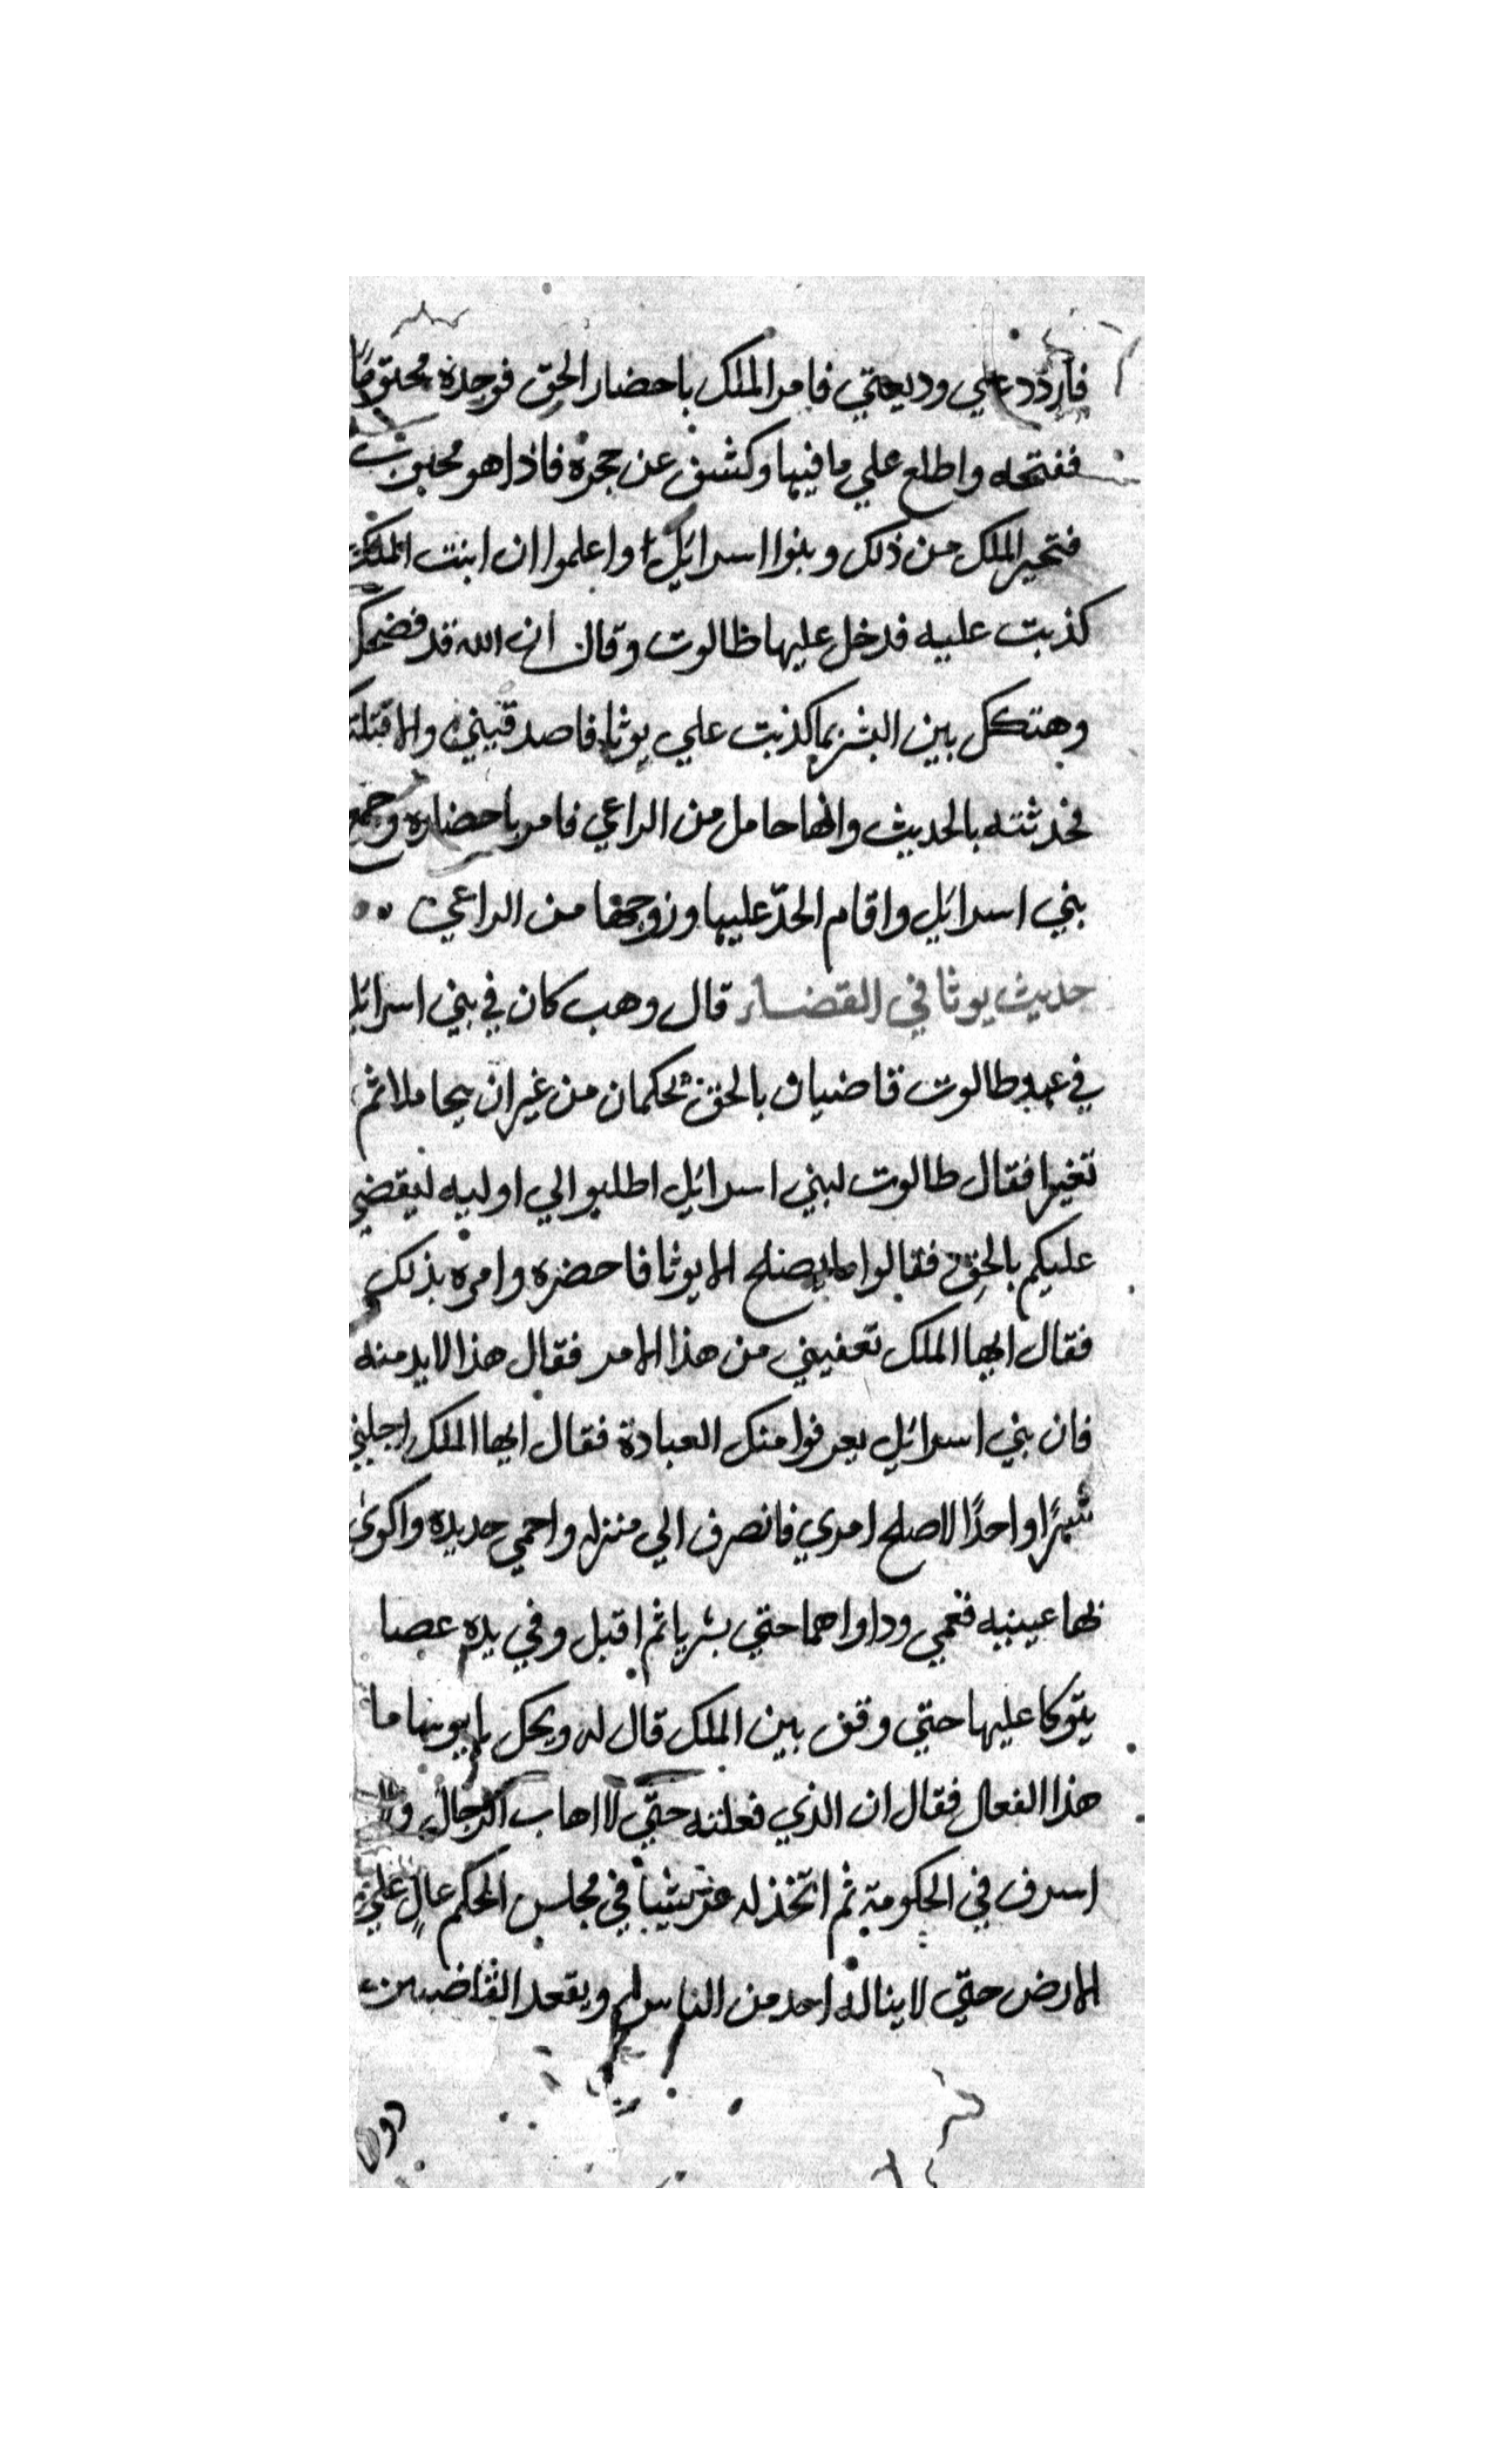 فاردد علي وديعتي فامر الملك باحضار الحق فوجدة مختومًا
ففتحه واطلع علي ما فيها وكشف عن حجرة فاذا هو مجبوب
فتحير الملك من ذلك وبنوا اسرائيل واعلموا ان ابنت الملك
كذبت عليه فدخل عليها طالوت وقال ان الله قد فضحك
وهتكك بين البشر بما كذبت علي يوثا فاصدقيني والا قتلتك
فحدثته بالحديث وانها حامل من الراعي فامر باحضاره وجمع
بني اسرائيل واقام الحدّ عليها وزوجها من الراعي
حديث يوثا في القضاء قال وهب كان في بني اسرائيل
في عهد طالوت قاضيان بالحق يحكمان من غير ان يحاملا ثم
تغيرا فقال طالوت لبني اسرائيل اطلبوا لي اوليه ليقضي
عليكم بالحق فقالوا ما يصلح الا يوثا فاحضره وامره بذلك
فقال ايها الملك تعفيني من هذا الامر فقال هذا لابد منه
فان بني اسرائيل يعرفوا منك العبادة فقال ايها الملك اجلني
شهرًا واحدًا لاصلح امري فانصرف الي منزله واحمي حديدة واكوى
بها عينيه فعمي وداواهما حتي بريا ثم اقبل وفي يده عصا
يتوكا عليها حتي وقف بين الملك قال له ويحك يا يوثا ما
هذا الفعال فقال ان الذي فعلته حتّي لا اهاب الرجال ولا
اسرف في الحكومة ثم اتخذ له عريشًا في مجلس الحكم عالٍ علي
الارض حتّي لا يناله احد من الناس ويقعد القاضيين
دون